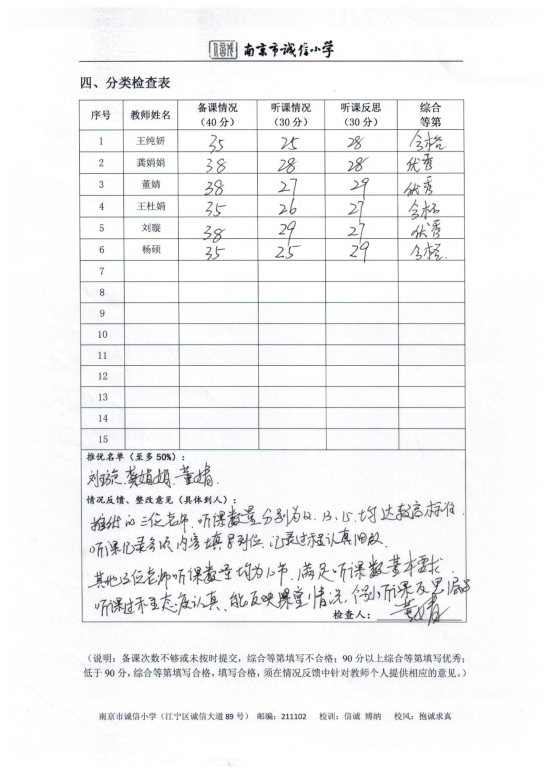 南京市诚信小学
四、分类检查表
序号 教师姓名 备课情况（40分） 听课情况（30分） 听课反思（30分） 综合等第
1 王纯妍 35 25 28 合格
2 龚娟娟 38 28 28 优秀
3 董婧 38 27 29 优秀
4 王杜娟 35 26 27 合格
5 刘璇 38 29 27 优秀
6 杨硕 35 25 29 合格
7
8
9
10
11
12
13
14
15
推优名单（至多50%）：
刘璇、龚娟娟、董婧
情况反馈、整改意见（具体到人）：
推优的三位老师，听课数量分别为12、13、15，均达较高标准
听课记录各项内容填写到位，记录过程认真
其他三位老师听课数量均为10节，满足听课数量基本要求
听课过程态度认真，能反映课堂情况，听课反思
检查人：董婧
（说明：备课次数不够或未按时提交，综合等第填写不合格；90分以上综合等第填写优秀；
低于90分，综合等第填写合格，填写合格，须在情况反馈中针对教师个人提供相应的意见。）
南京市诚信小学（江宁区诚信大道89号） 邮编：211102 校训：信诚 博纳 校风：抱诚求真